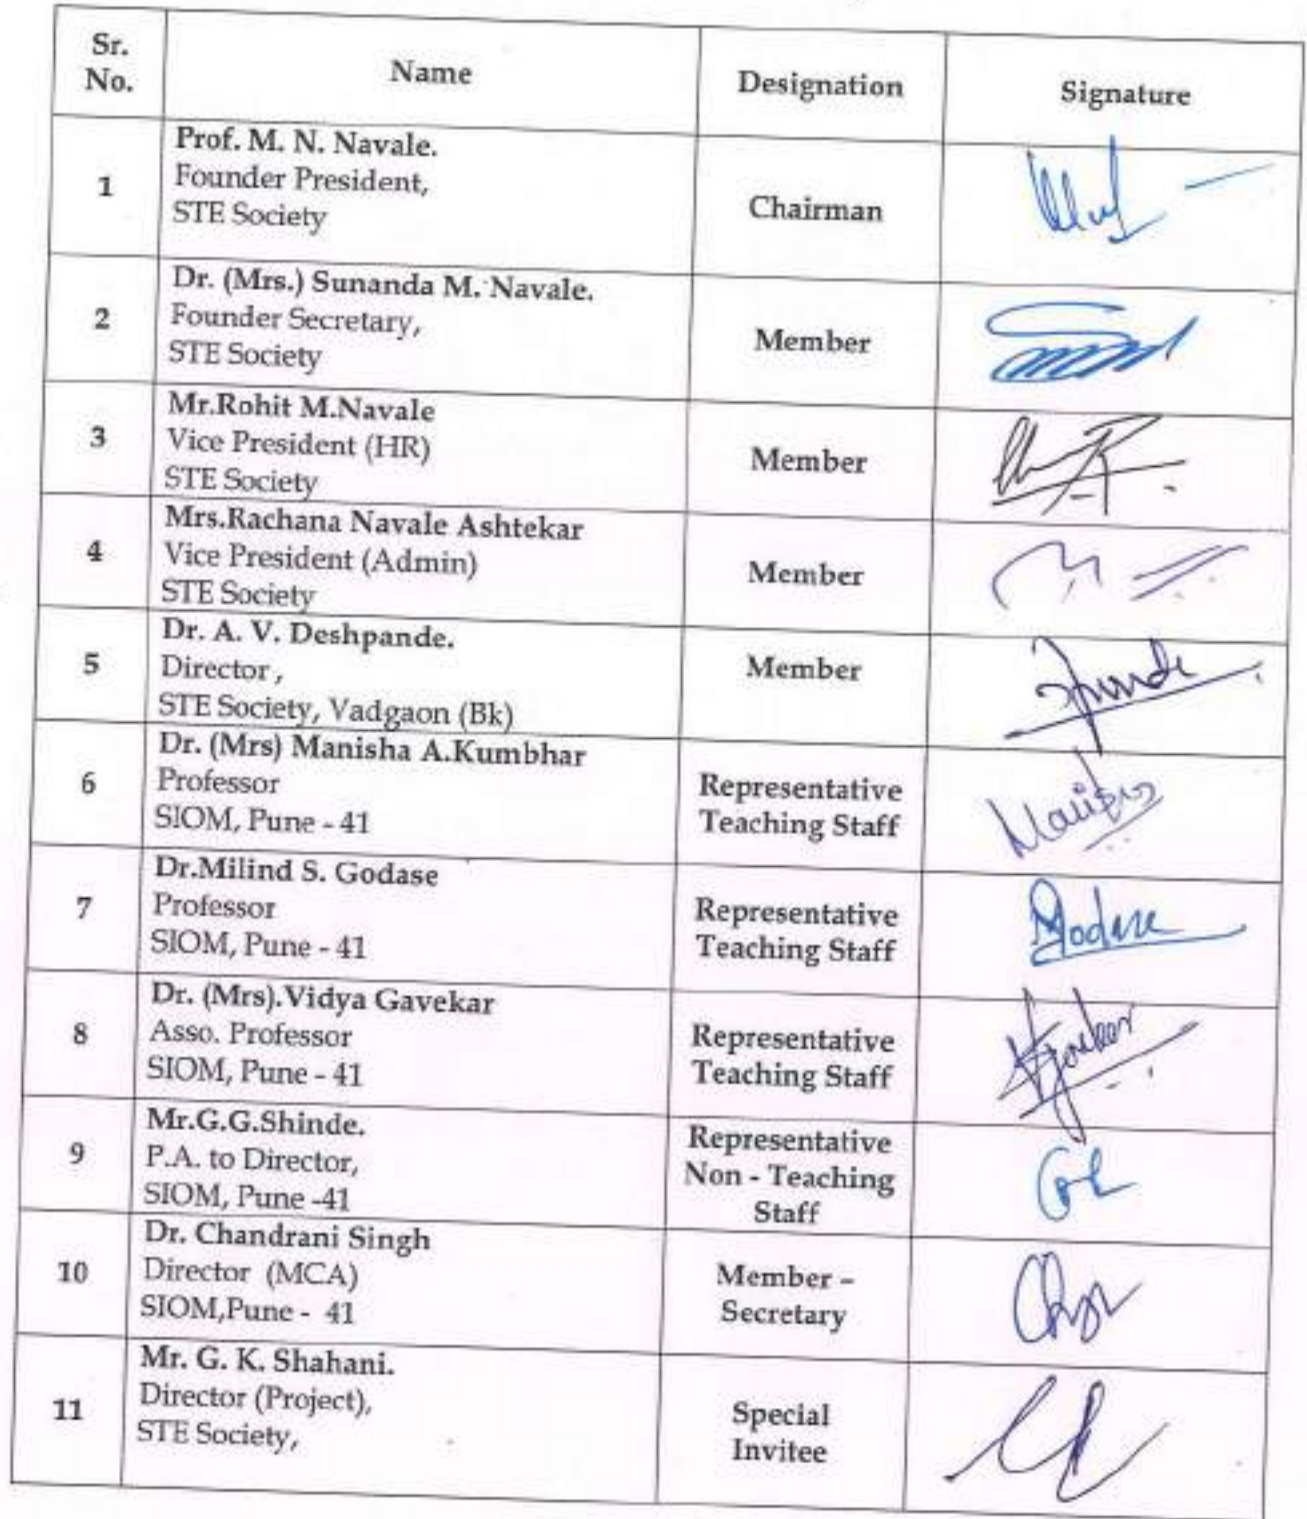 Sr.
No.
Name
Designation
Signature
1
Prof. M. N. Navale.
Founder President,
STE Society
Chairman
2
Dr. (Mrs.) Sunanda M. Navale.
Founder Secretary,
STE Society
Member
3
Mr.Rohit M.Navale
Vice President (HR)
STE Society
Member
4
Mrs.Rachana Navale Ashtekar
Vice President (Admin)
STE Society
Member
5
Dr. A. V. Deshpande.
Director,
STE Society, Vadgaon (Bk)
Member
6
Dr. (Mrs) Manisha A.Kumbhar
Professor
SIOM, Pune - 41
Representative
Teaching Staff
7
Dr.Milind S. Godase
Professor
SIOM, Pune - 41
Representative
Teaching Staff
Godase
8
Dr. (Mrs).Vidya Gavekar
Asso. Professor
SIOM, Pune - 41
Representative
Teaching Staff
9
Mr.G.G.Shinde.
P.A. to Director,
SIOM, Pune -41
Representative
Non - Teaching
Staff
10
Dr. Chandrani Singh
Director (MCA)
SIOM,Pune - 41
Member –
Secretary
11
Mr. G. K. Shahani.
Director (Project),
STE Society,
Special
Invitee